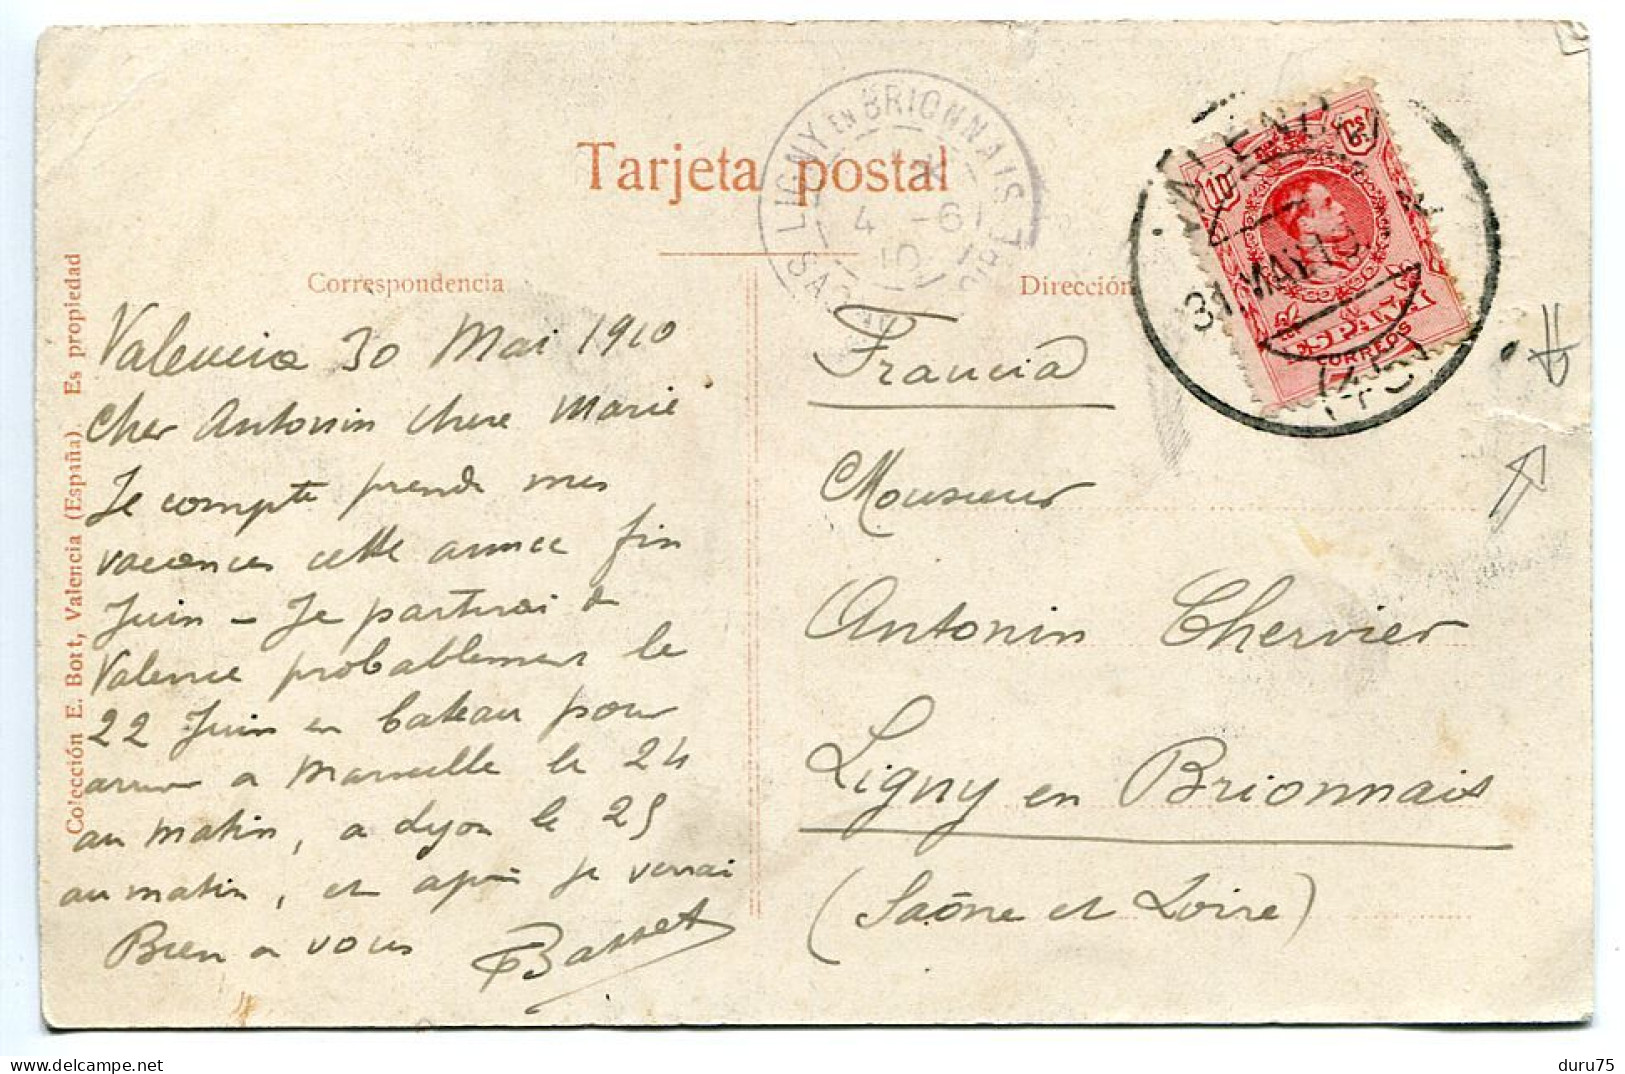 Tarjeta postal
Correspondencia
Dirección
Colección E. Bort, Valencia (España). Es propiedad
LIGNY EN BRIONNAIS
4 -6
10
VALENCIA
31 MAY 1
10 Cs.
CORREOS
Valencia 30 Mai 1910
Cher Antonin chere Marie
Je compte prendre mes
vacances cette année fin
Juin – Je partirai de
Valence probablement le
22 Juin en bateau pour
arriver a Marseille le 24
au matin, a Lyon le 25
au matin, et après je verrai
Bien a vous Basset
Francia
Monsieur
Antonin Chervier
Ligny en Brionnais
(Saône et Loire)
duru75